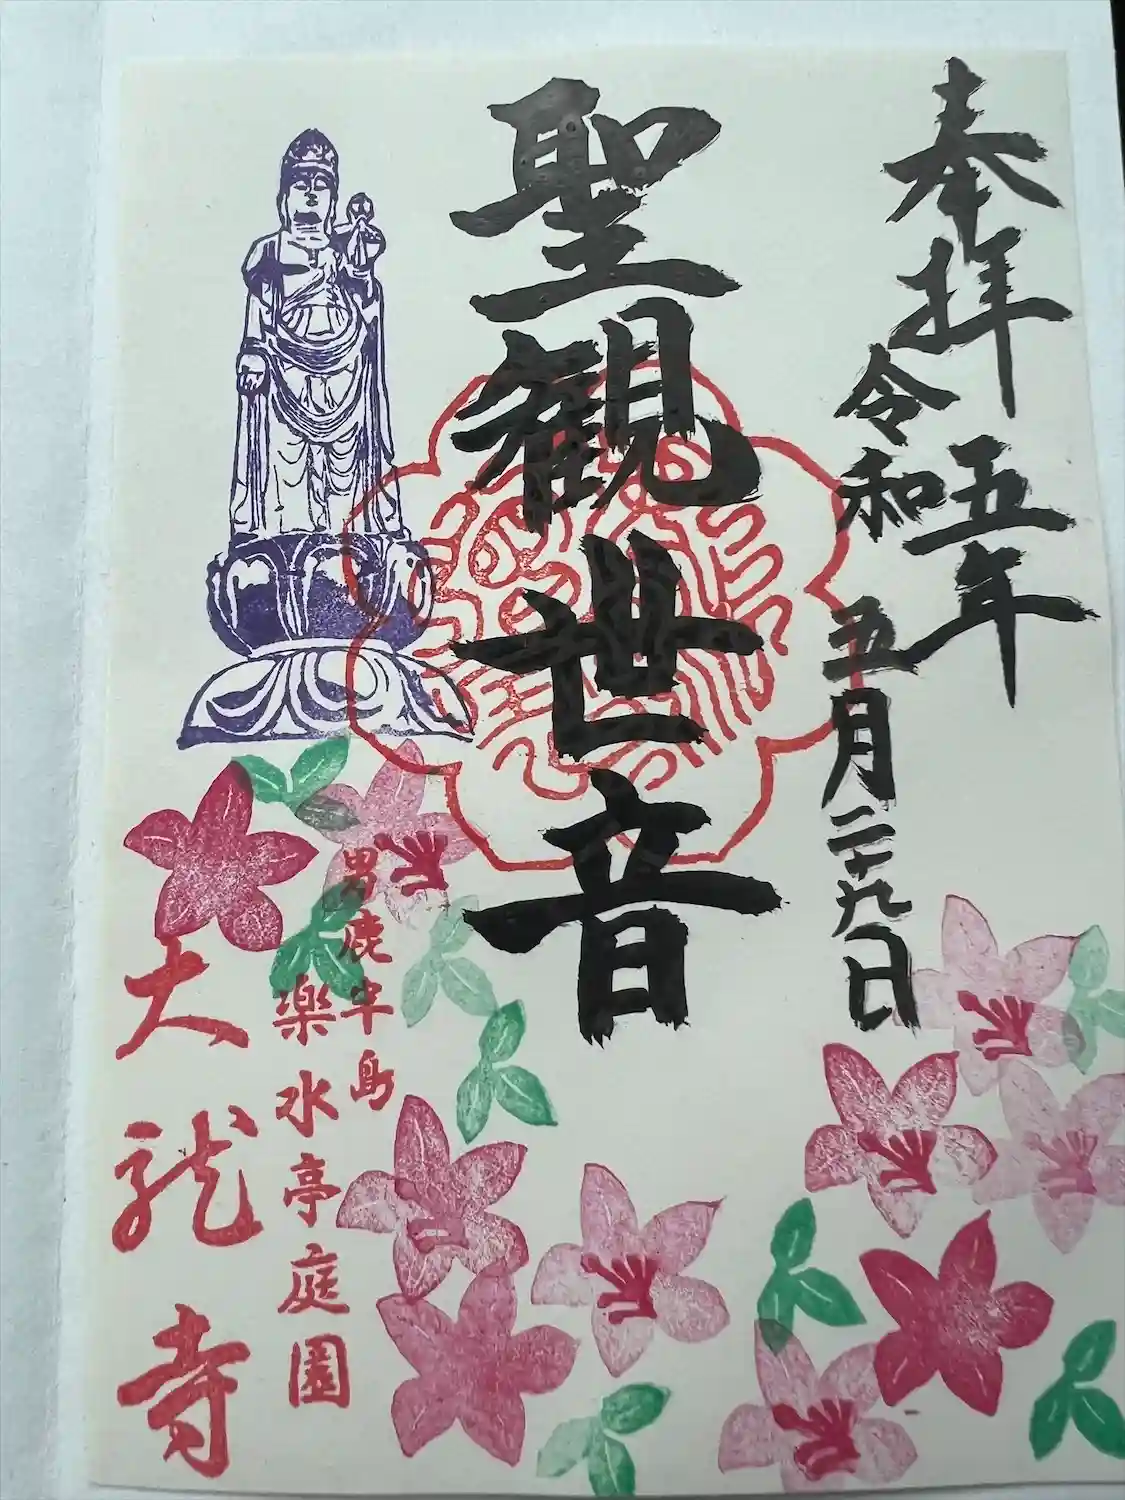 奉拝
令和五年
五月二十九日
聖観世音
男鹿半島
楽水亭庭園
大龍寺